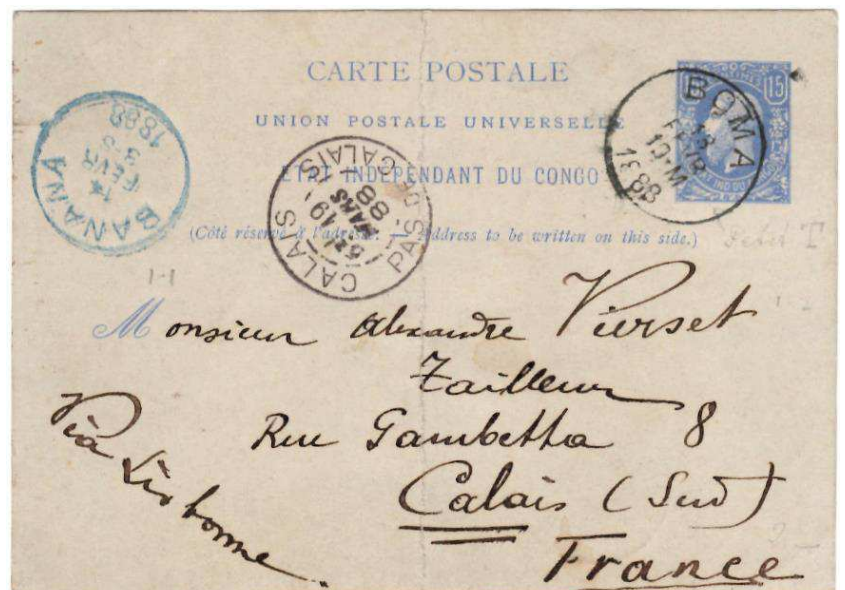 CARTE POSTALE
UNION POSTALE UNIVERSELLE
ETAT INDEPENDANT DU CONGO
(Côté réservé à l'adresse. — Address to be written on this side.)
15
BOMA
13
FEVR
10-M
1888
BANANA
14
FEVR
3-S
1888
CALAIS
19
MARS
88
PAS DE CALAIS
1-1
Monsieur Alexandre Vierset
Tailleur
Rue Gambetta 8
Calais (Sud)
France
Via Lisbonne.